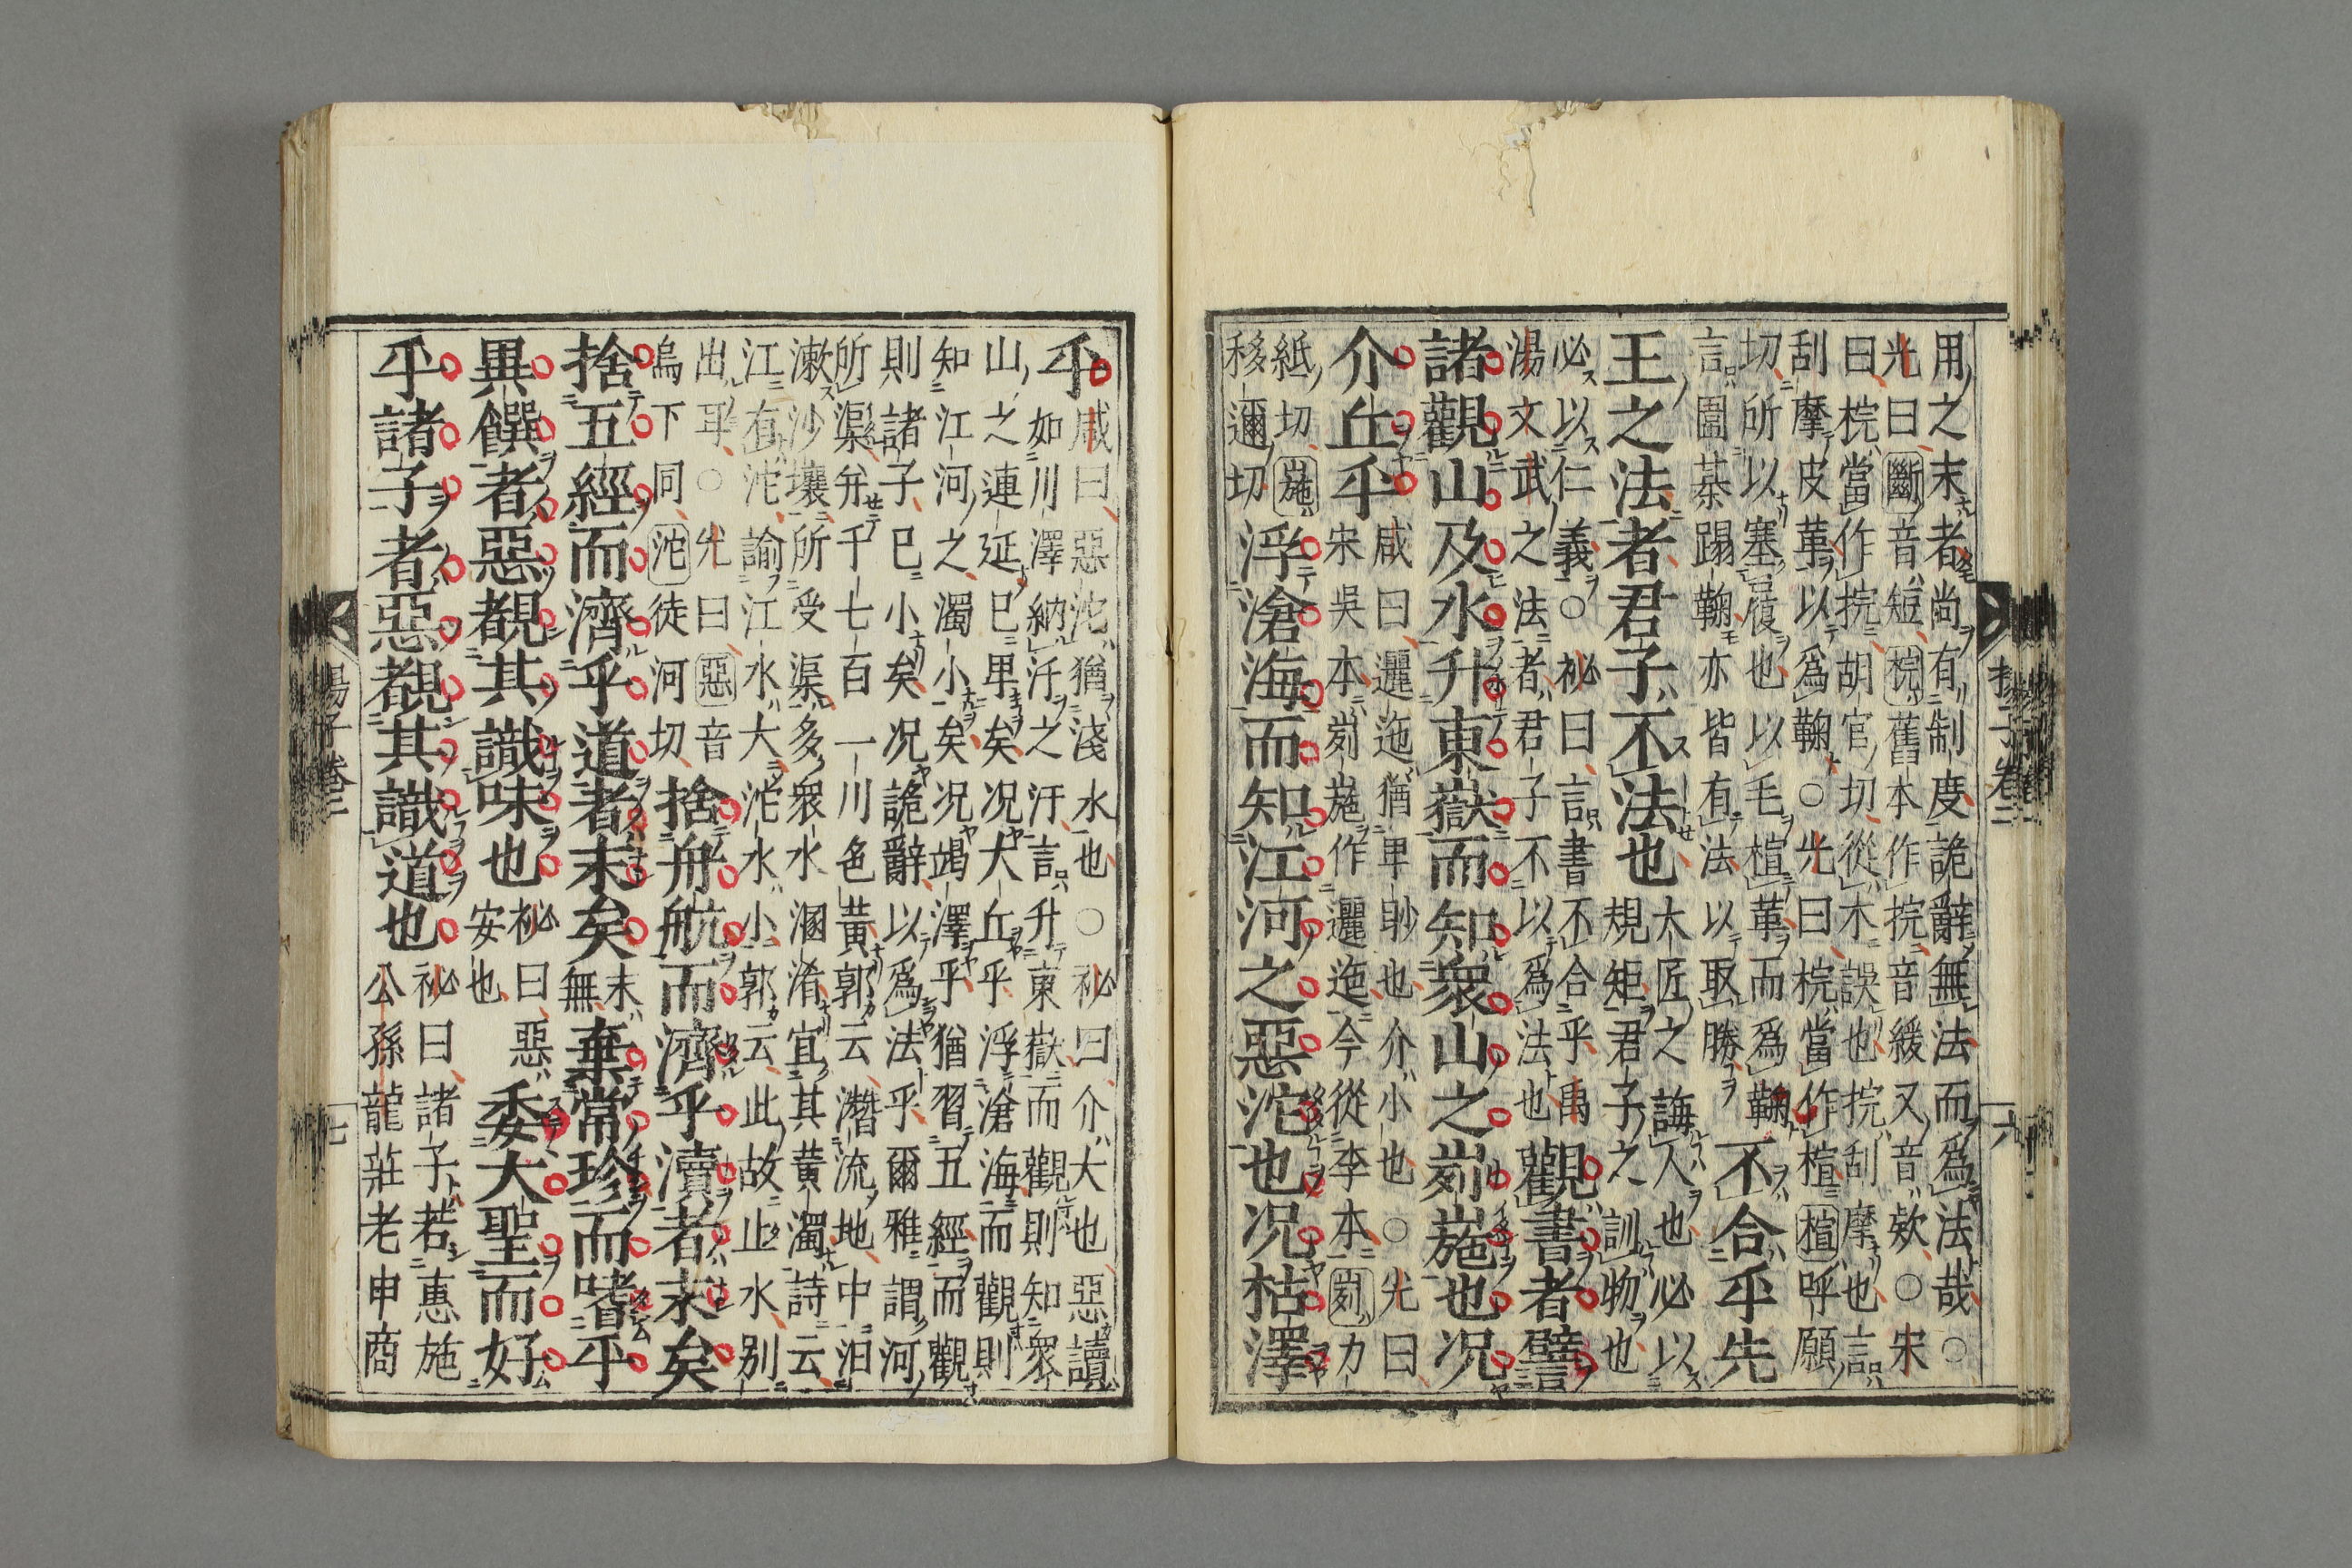 用之末者尚有制度詭辭無法而爲法哉○
光曰斷音短梡舊本作捖音緩又音欵○宋
曰梡當作捖胡官切從木誤也捖刮摩也言
刮摩皮革以爲鞠○光曰梡當作楦楦呼願
切所以塞履也以毛楦革而爲鞠
言圍棊蹋鞠亦皆有法以取勝
不合乎先
王之法者君子不法也
大匠之誨人也必以
規矩君子之訓物也
必以仁義○祕曰言書不合乎禹
湯文武之法者君子不以爲法也
觀書者譬
諸觀山及水升東嶽而知衆山之峛崺也况
介丘乎
咸曰邐迤猶卑眇也介小也○光曰
宋吳本峛崺作邐迤今從李本峛力
紙切崺
移邇切
浮滄海而知江河之惡沱也况枯澤
乎
咸曰惡沱猶淺水也○祕曰介大也惡讀
如川澤納汙之汙言升東嶽而觀則知衆
山之連延已卑矣况大丘乎浮滄海而觀則
知江河之濁小矣况竭澤乎猶習五經而觀
則諸子已小矣况詭辭以爲法乎爾雅謂河
所渠并千七百一川色黄郭云潛流地中汩
漱沙壤所受渠多衆水溷淆宜其黄濁詩云
江有沱諭江水大沱水小郭云此故止水别
出耳○光曰惡音
烏下同沱徒河切
捨舟航而濟乎瀆者末矣
捨五經而濟乎道者末矣
末
無
棄常珍而嗜乎
異饌者惡覩其識味也
祕曰惡
安也
委大聖而好
乎諸子者惡覩其識道也
祕曰諸子若惠施
公孫龍莊老申商
揚子卷二
六
揚子卷二
七